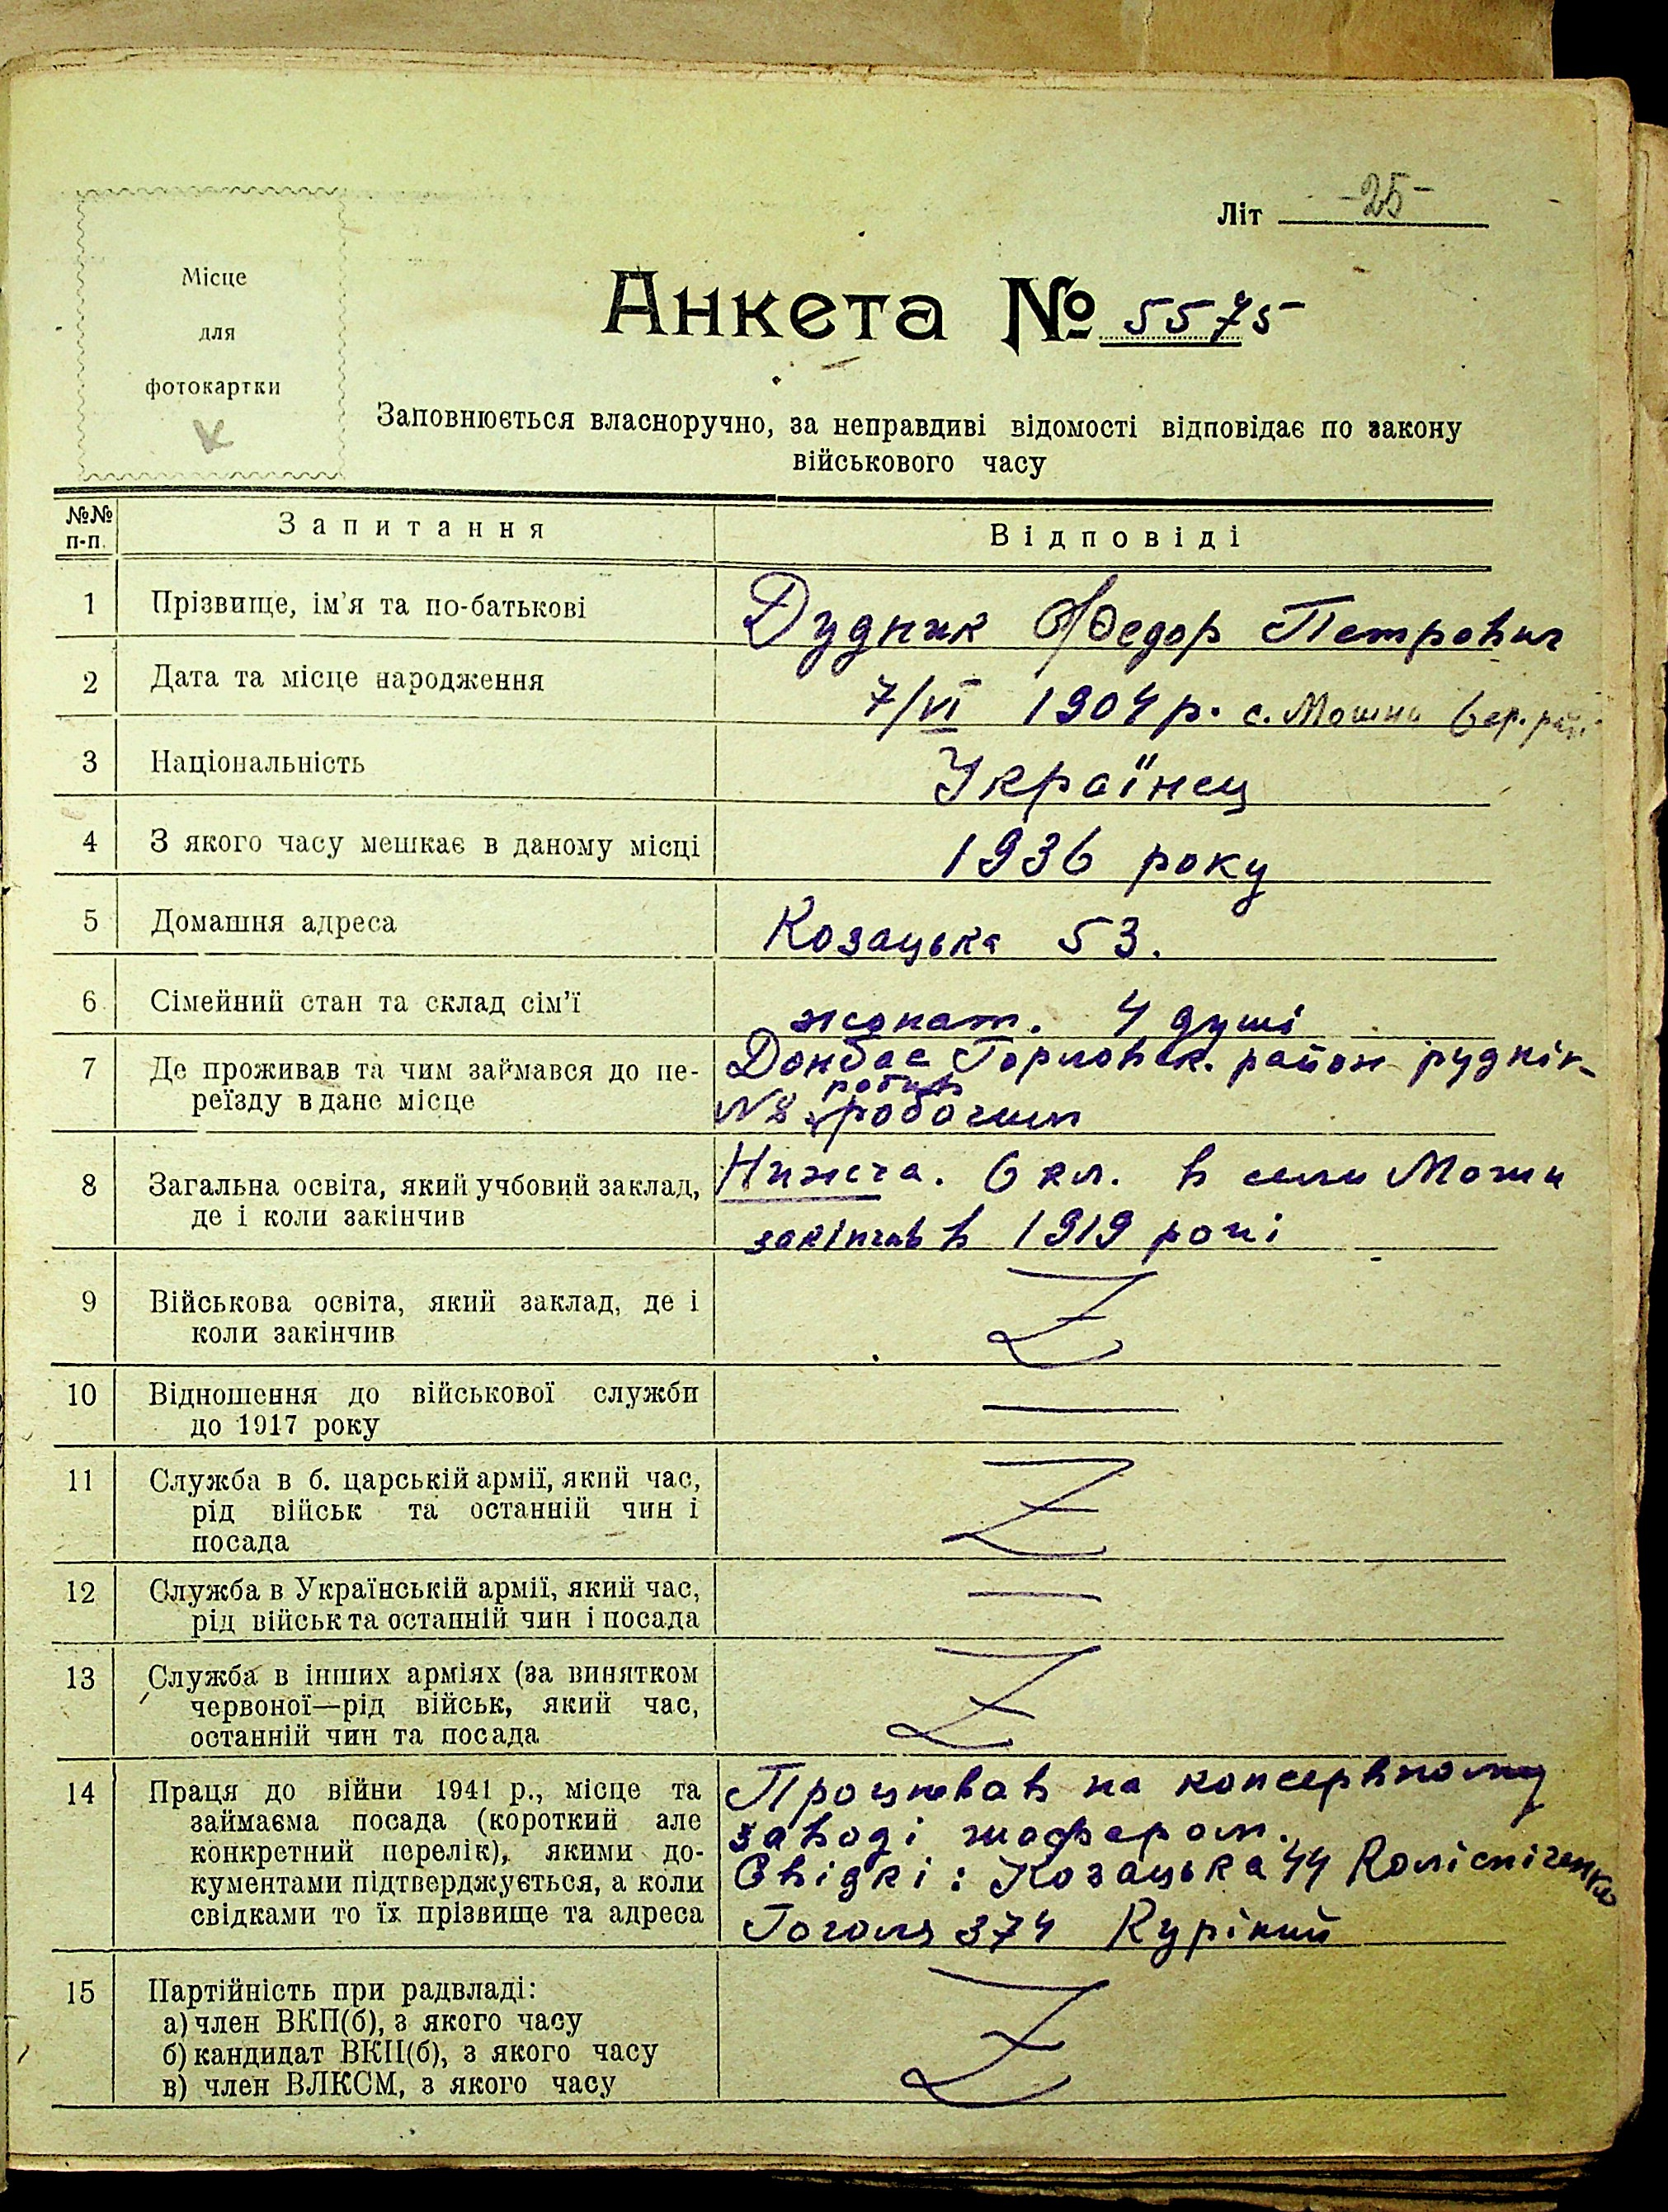 Літ -25-
Місце
для
фотокартки
Анкета № 5575
Заповнюється власноручно, за неправдиві відомості відповідає по закону
військового часу
№№ п-п. Запитання Відповіді
1 Прізвище, ім'я та по-батькові Дудник Федор Петрович
2 Дата та місце народження 7/VI 1904 р. с. Мошни
3 Національність Українец
4 З якого часу мешкає в даному місці 1936 року
5 Домашня адреса Козацька 53.
6 Сімейний стан та склад сім'ї жонат. 4 душі
7 Де проживав та чим займався до пе- Донбас Горловск. район руднік-
робив
реїзду в дане місце №8 робочим
8 Загальна освіта, який учбовий заклад, Нижча. 6 кл. в сели Мошни
де і коли закінчив закінчив в 1919 році
9 Військова освіта, який заклад, де і
коли закінчив Z
10 Відношення до військової служби
до 1917 року —
11 Служба в б. царській армії, який час,
рід військ та останній чин і Z
посада
12 Служба в Українській армії, який час, —
рід військ та останній чин і посада
13 Служба в інших арміях (за винятком
червоної—рід військ, який час, Z
останній чин та посада
14 Праця до війни 1941 р., місце та Процював на консервному
займаєма посада (короткий але заводі шофером.
конкретний перелік), якими до-
кументами підтверджується, а коли Свідкі: Козацька 44 Колісніченко
свідками то їх прізвище та адреса Гоголя 374 Куріний
15 Партійність при радвладі:
а) член ВКП(б), з якого часу Z
б) кандидат ВКП(б), з якого часу
в) член ВЛКСМ, з якого часу